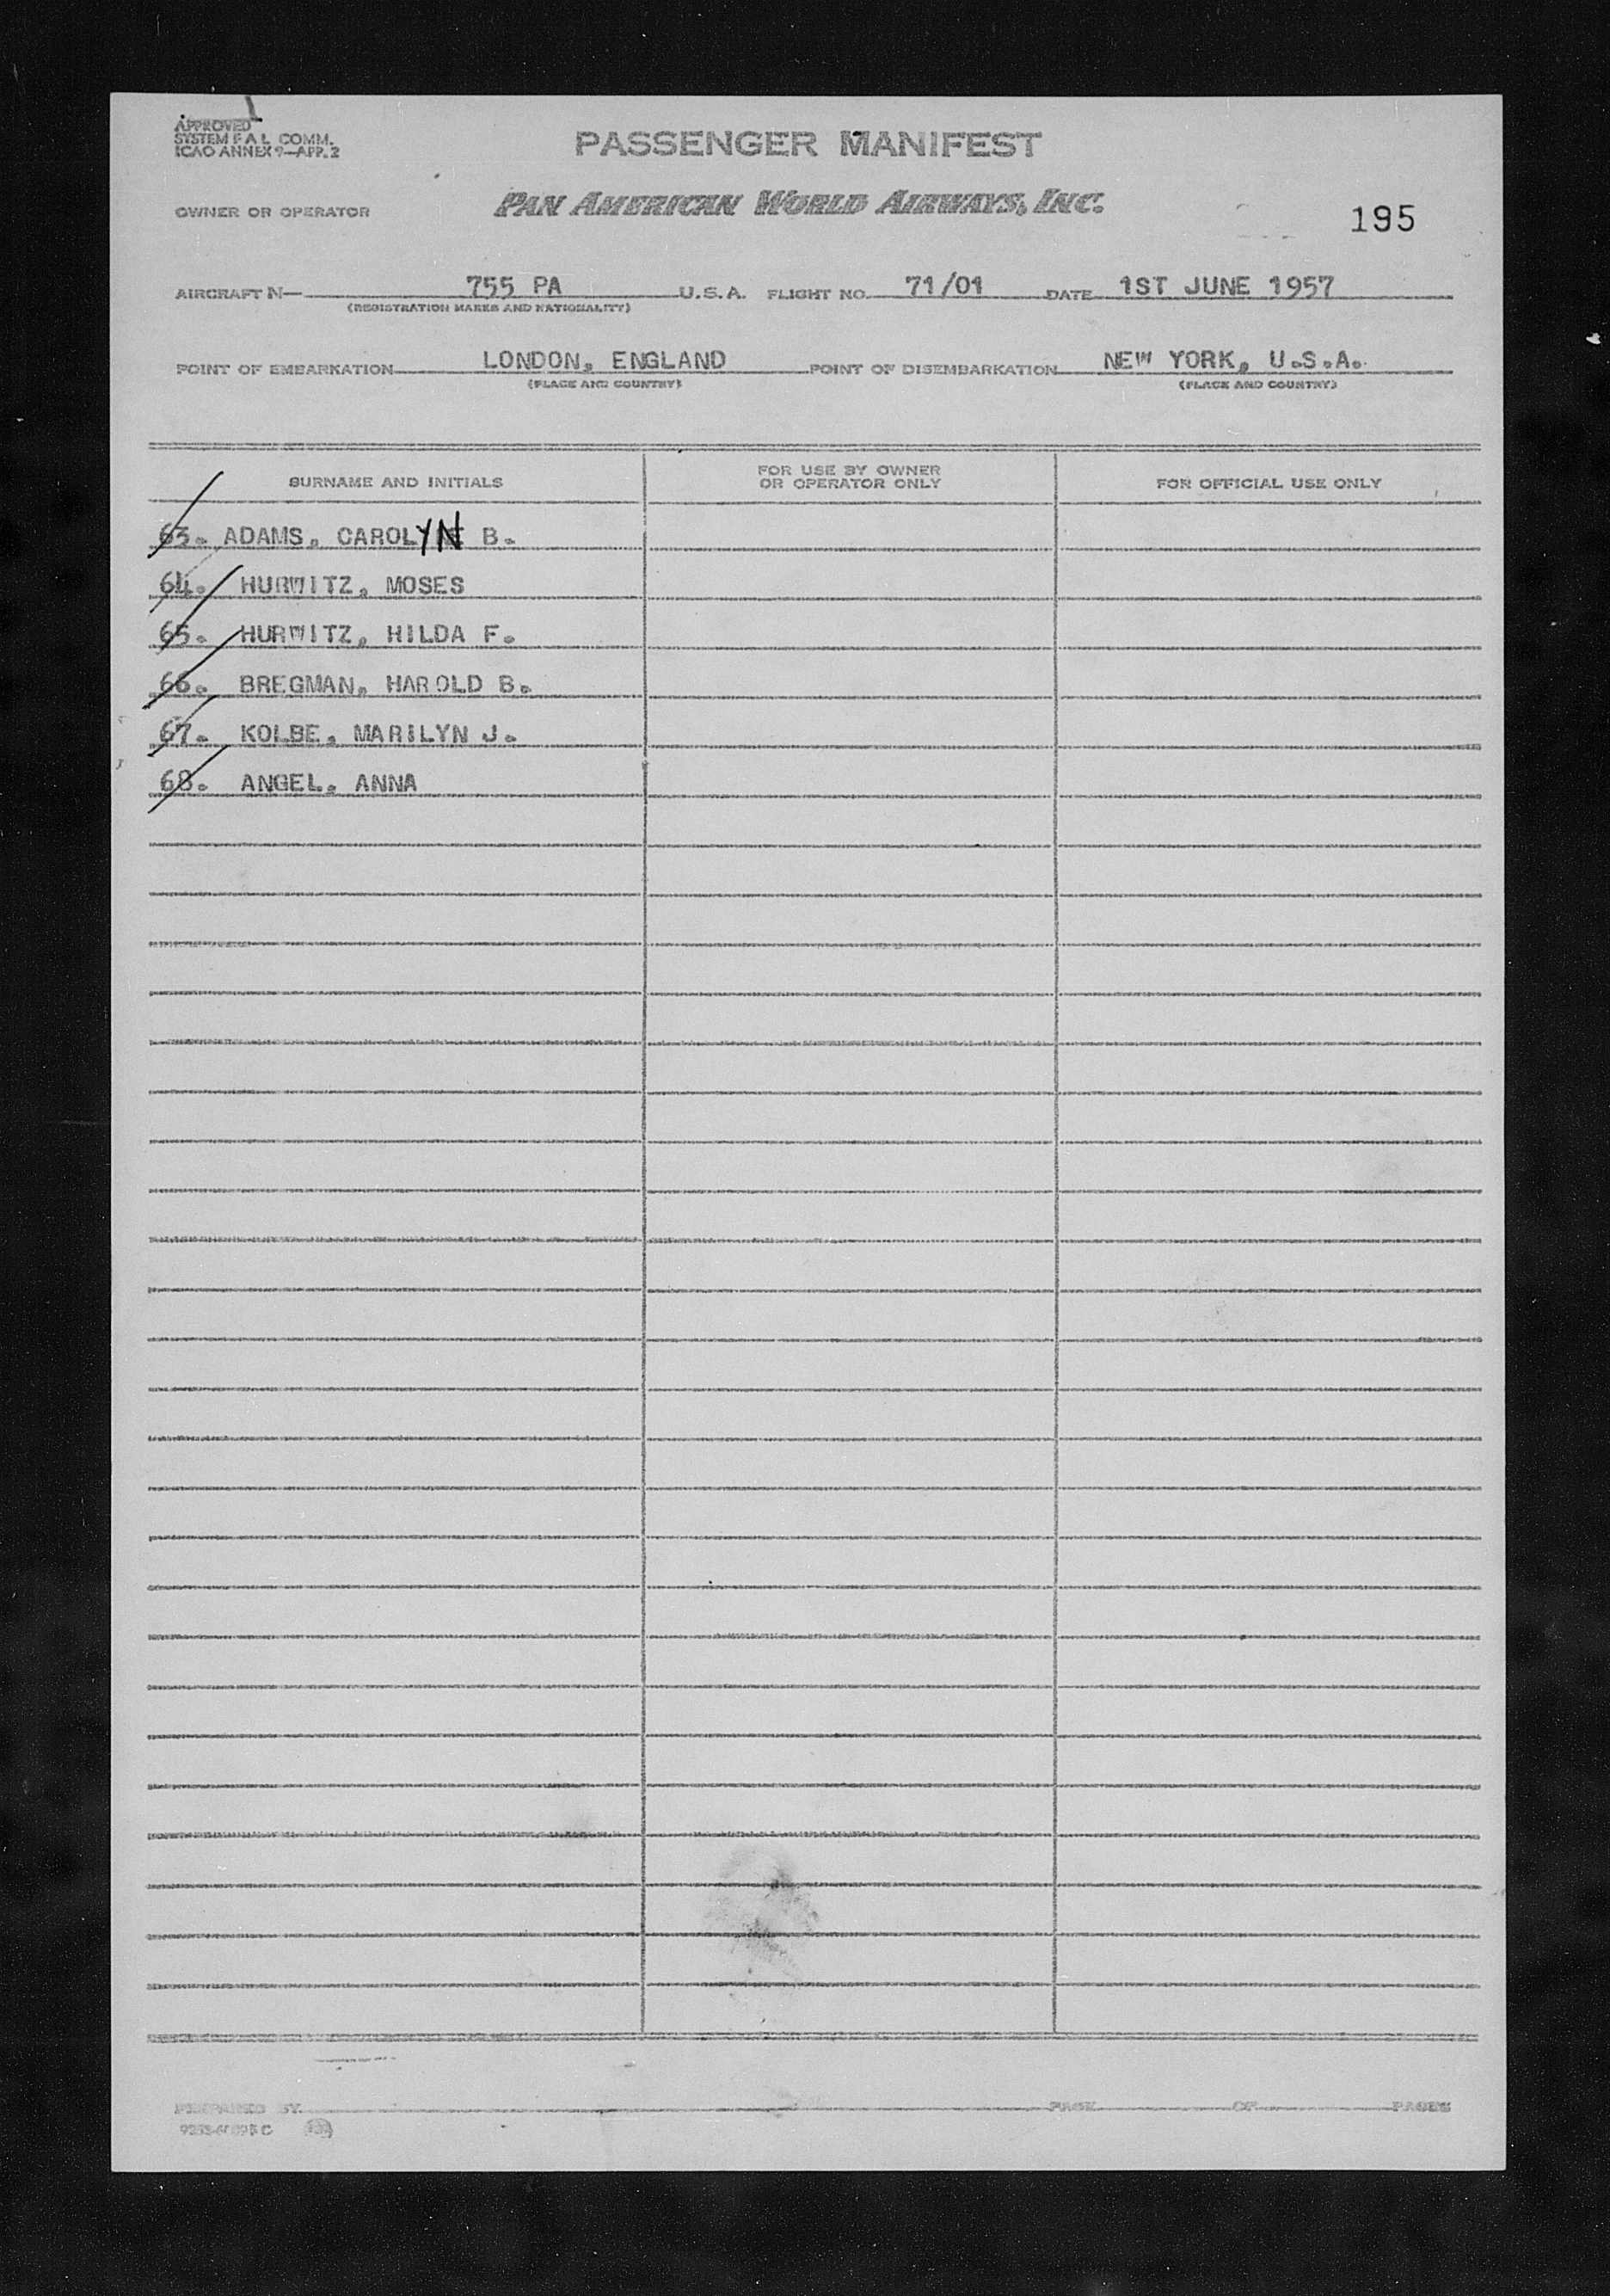 APPROVED
SYSTEM F A L COMM.
ICAO ANNEX 9—APP. 2
PASSENGER MANIFEST
OWNER OR OPERATOR PAN AMERICAN WORLD AIRWAYS, INC.
195
AIRCRAFT N— 755 PA U.S.A. FLIGHT NO. 71/01 DATE 1ST JUNE 1957
(REGISTRATION MARKS AND NATIONALITY)
POINT OF EMBARKATION LONDON, ENGLAND POINT OF DISEMBARKATION NEW YORK, U.S.A.
(PLACE AND COUNTRY) (PLACE AND COUNTRY)
SURNAME AND INITIALS FOR USE BY OWNER OR OPERATOR ONLY FOR OFFICIAL USE ONLY
63. ADAMS, CAROLYN B.
64. HURWITZ, MOSES
65. HURWITZ, HILDA F.
66. BREGMAN, HAROLD B.
67. KOLBE, MARILYN J.
68. ANGEL, ANNA
PREPARED BY PAGE OF PAGES